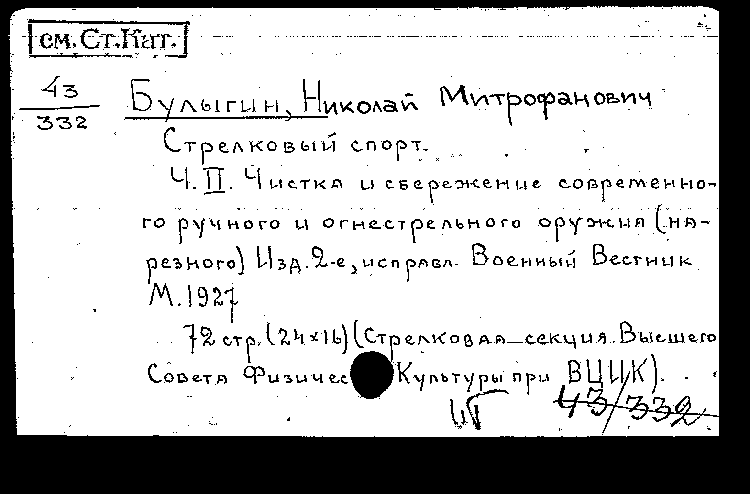 см. Ст. Кат.
43
332
Булыгин, Николай Митрофанович
Стрелковый спорт.
Ч. II. Чистка и сбережение современно-
го ручного и огнестрельного оружия (на-
резного) Изд. 2-е, исправл. Военный Вестник
М. 1927
72 стр. (24×16) (Стрелковая секция Высшего
Совета Физичес Культуры при ВЦИК).
43/332